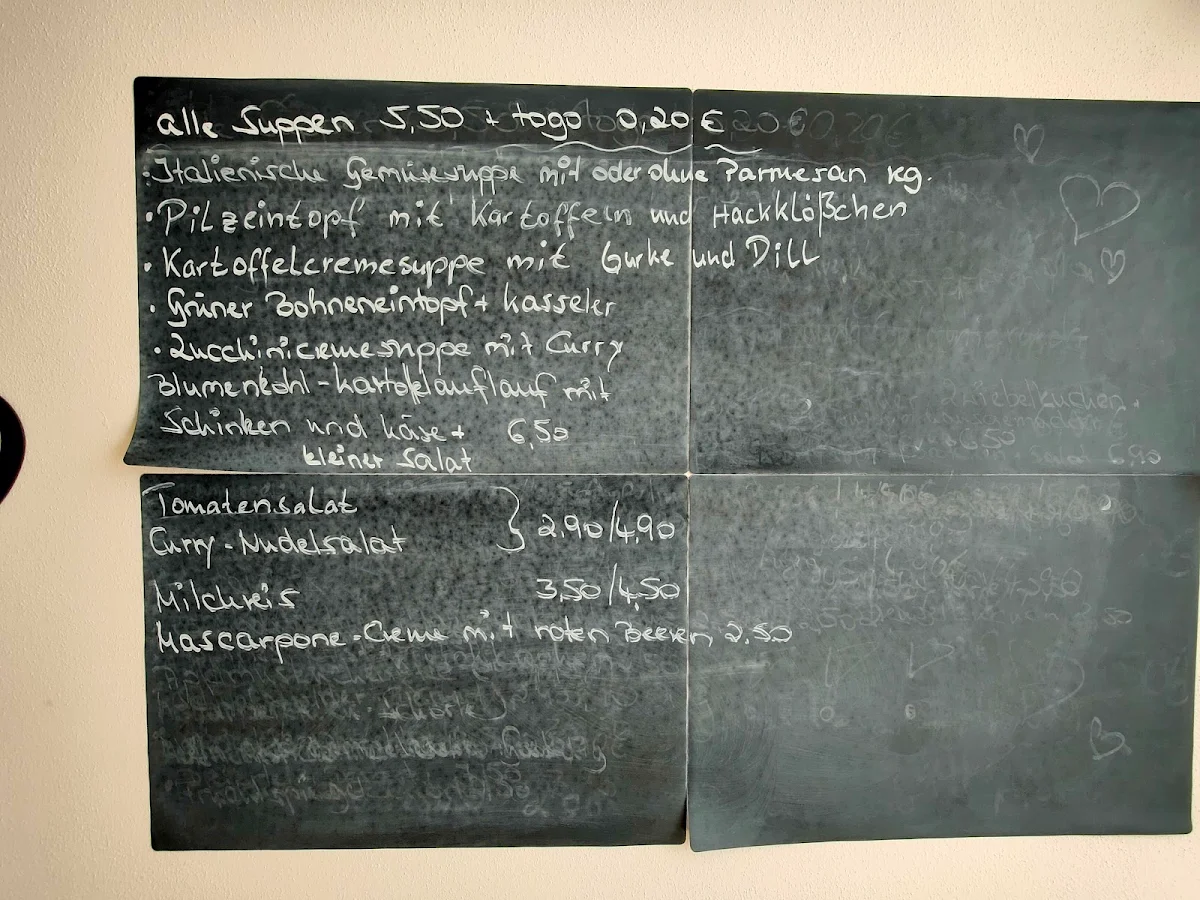 alle Suppen 5,50 + togo 0,20 €
• Italienische Gemüsesuppe mit oder ohne Parmesan veg.
• Pilzeintopf mit Kartoffeln und Hackklößchen
• Kartoffelcremesuppe mit Gurke und Dill
• Grüner Bohneneintopf + Kasseler
• Zucchinicremesuppe mit Curry
Blumenkohl-Kartoffelauflauf mit
Schinken und Käse + 6,50
kleiner Salat
Tomatensalat
Curry-Nudelsalat } 2,90/4,90
Milchreis 3,50/4,50
Mascarpone-Creme mit roten Beeren 2,50